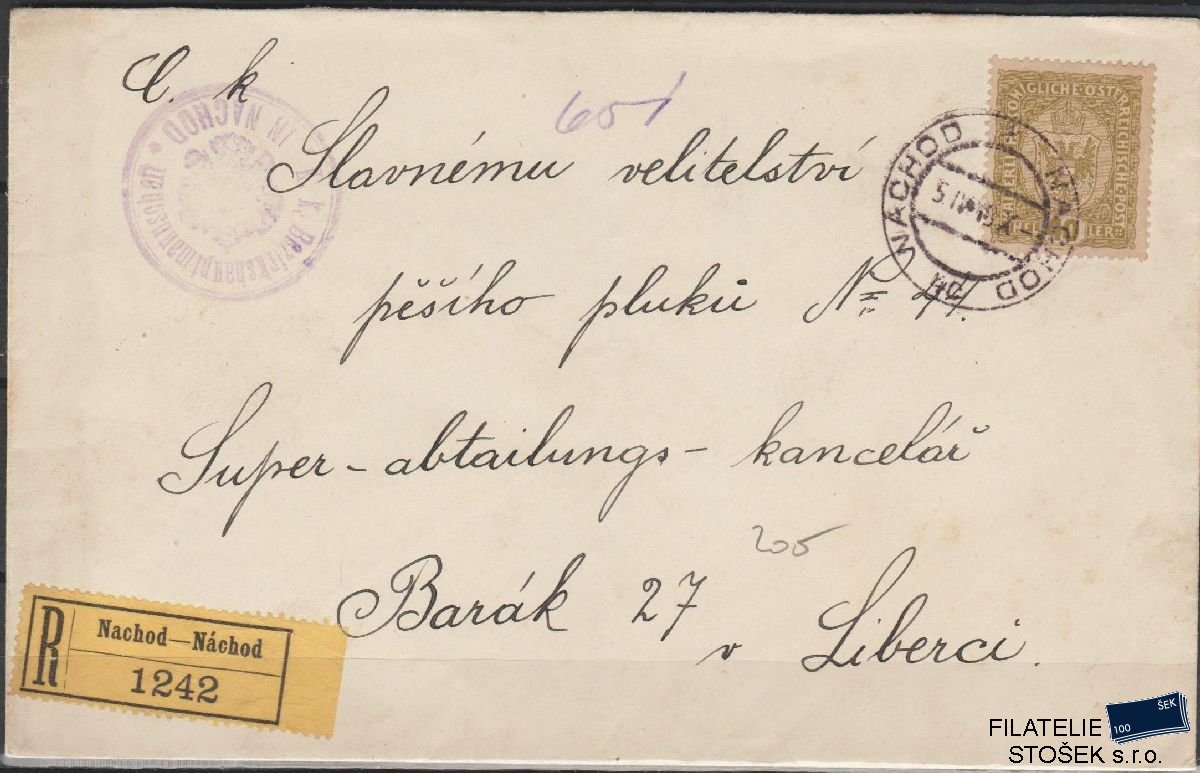 C. k
651
Slavnému velitelství
pěšího pluku N= 44.
Super-abtailungs-kancelář
205
Barák 27
v Liberci.
K. Bezirkshauptmannschaft
IN NACHOD
KAISERLICHE KÖNIGLICHE ÖSTERREICHISCHE POST
NACHOD * NÁCHOD
5 IV
R
Nachod—Náchod
1242
100 ŠEK
FILATELIE
STOŠEK s.r.o.